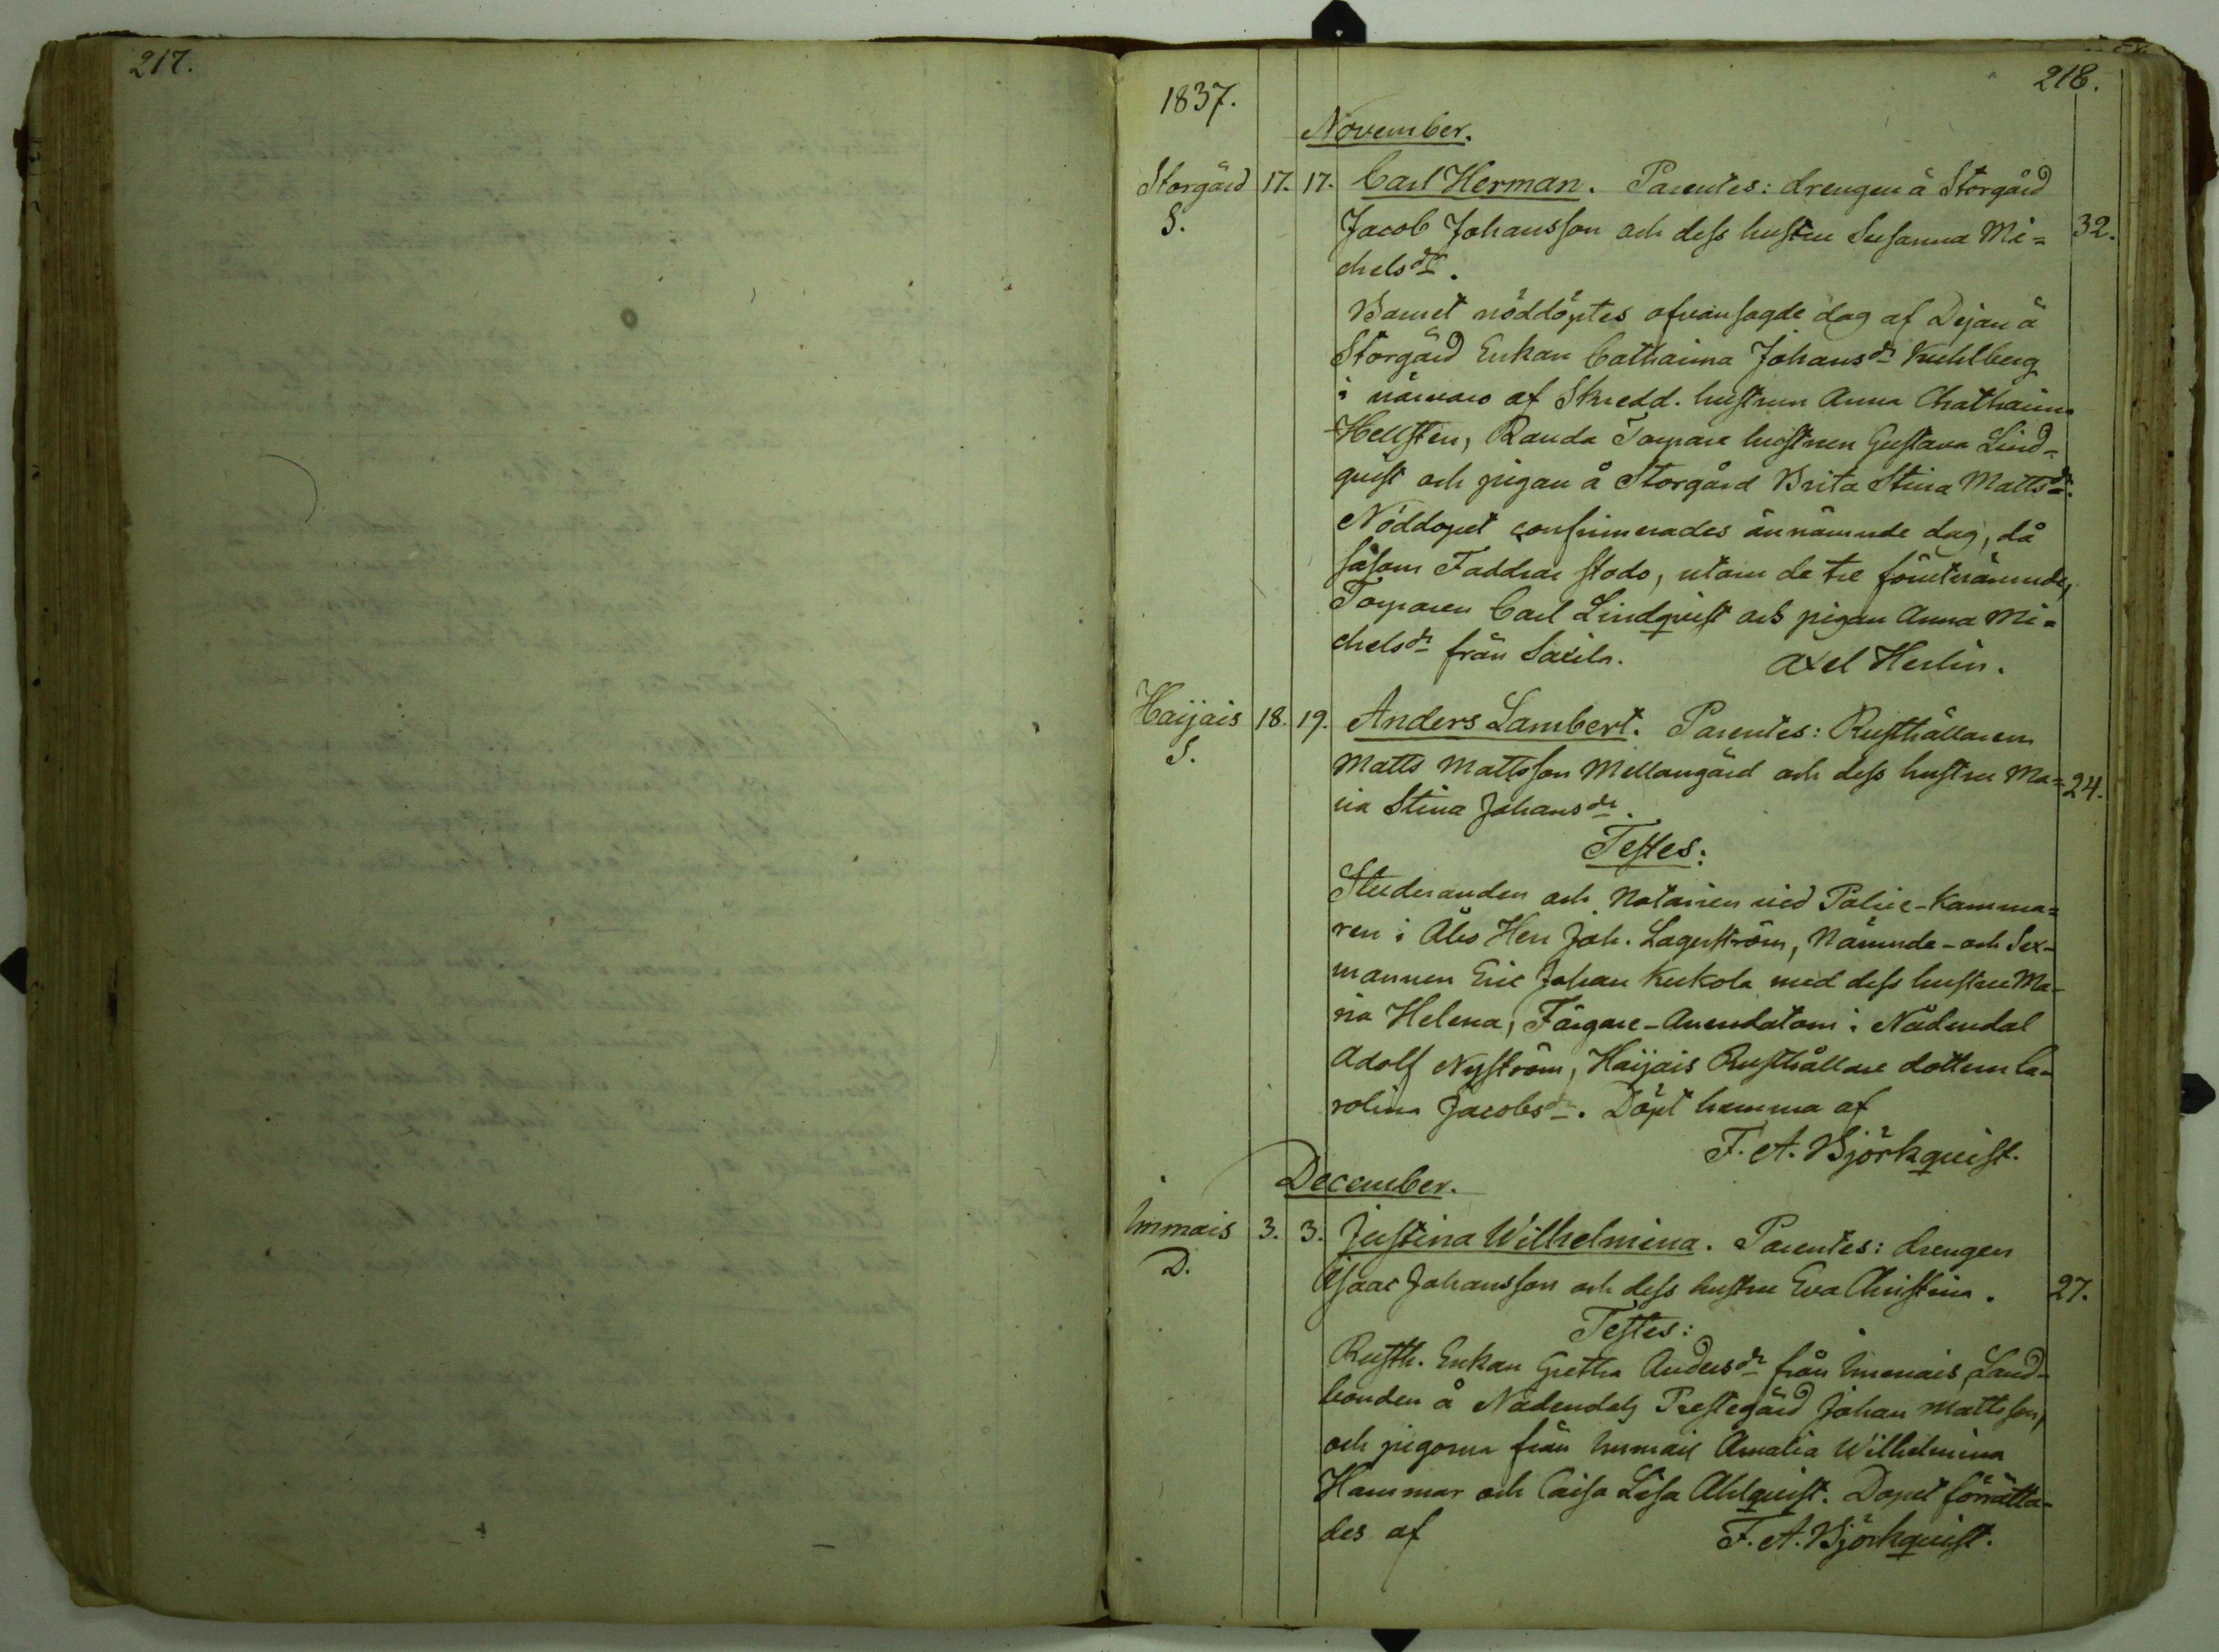 217.
218.
1837.
November.
Storgård 17. 17. Carl Herman. Parentes: drengen å Storgård
S. Jacob Johansson och dess hustru Susanna Mi= 32.
chelsdr.
Barnet nöddöptes ofvansagde dag af Dejan å
Storgård Enkan Catharina Johansdr Kuhlberg
i närvaro af Skredd. hustrun Anna Chatharina
Hellsten, Randa Torpare hustrun Gustava Lind-
quist och pigan å Storgård Brita Stina Mattsdr.
Nöddopet confirmerades ännämnde dag, då
såsom Faddrar stodo, utom de tre förutnämnde,
Torparen Carl Lindquist och pigan Anna Mi=
chelsdr från Saxila. Axel Herlin.
Haijais 18. 19. Anders Lambert. Parentes: Rusthållaren
S. Matts Mattsson Mellangård och dess hustru Ma= 24.
ria Stina Johansdr.
Testes:
Studeranden och Notarien vid Police-Kamma=
ren i Åbo Herr Joh. Lagerström, Nämnde- och Sex-
mannen Eric Johan Kukola med dess hustru Ma-
ria Helena, Färgare-Arendatorn i Nådendal
Adolf Nyström, Haijais Rusthållare dottern Ca-
rolina Jacobsdr. Döpt hemma af
F. A. Björkquist.
December.
Immais 3. 3. Justina Wilhelmina. Parentes: drengen
D. Isaac Johansson och dess hustru Eva Christina. 27.
Testes:
Rusth. Enkan Gretha Andersdr från Immais, Land-
bonden å Nådendals Prestegård Johan Mattsson,
och pigorna från Immais Amalia Wilhelmina
Hammar och Caisa Lisa Ahlquist. Dopet förrätta-
des af F. A. Björkquist.